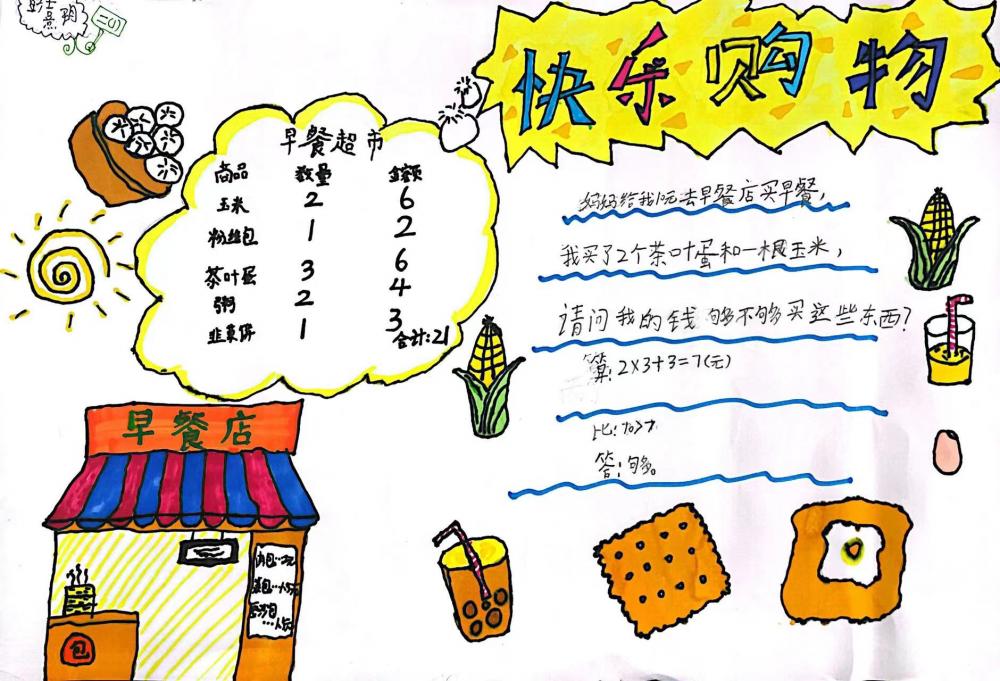 二(1)
快乐购物
早餐超市
商品 数量 金额
玉米 2 6
粉丝包 1 2
茶叶蛋 3 6
粥 2 4
韭菜饼 1 3
合计:21
妈妈给我10元去早餐店买早餐,
我买了2个茶叶蛋和一根玉米,
请问我的钱够不够买这些东西?
算:2×3+3=7(元)
比:10>7
答:够。
早餐店
肉包…2元
菜包…1.5元
包